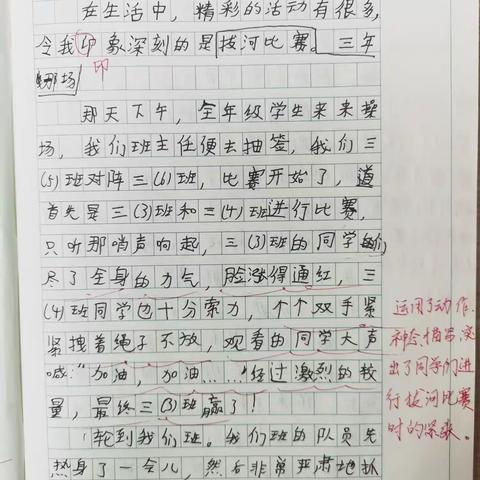 在生活中，精彩的活动有很多，
令我印象深刻的是拔河比赛。三年
印
那场
那天下午，全年级学生来来操
场，我们班主任便去抽签，我们三
(5)班对阵三(6)班，比赛开始了，道
首先是三(3)班和三(4)班进行比赛，
只听那哨声响起，三(3)班的同学们
尽了全身的力气，脸涨得通红，三
(4)班同学也十分索力，个个双手紧
紧拽着绳子不放，观看的同学大声
喊：“加油，加油……”经过激烈的较
量，最终三(3)班赢了！
轮到我们班。我们班的队员先
热身了一会儿，然后非常严肃地抓
运用了动作、
神态描写，突
出了同学们进
行拔河比赛
时的紧张。